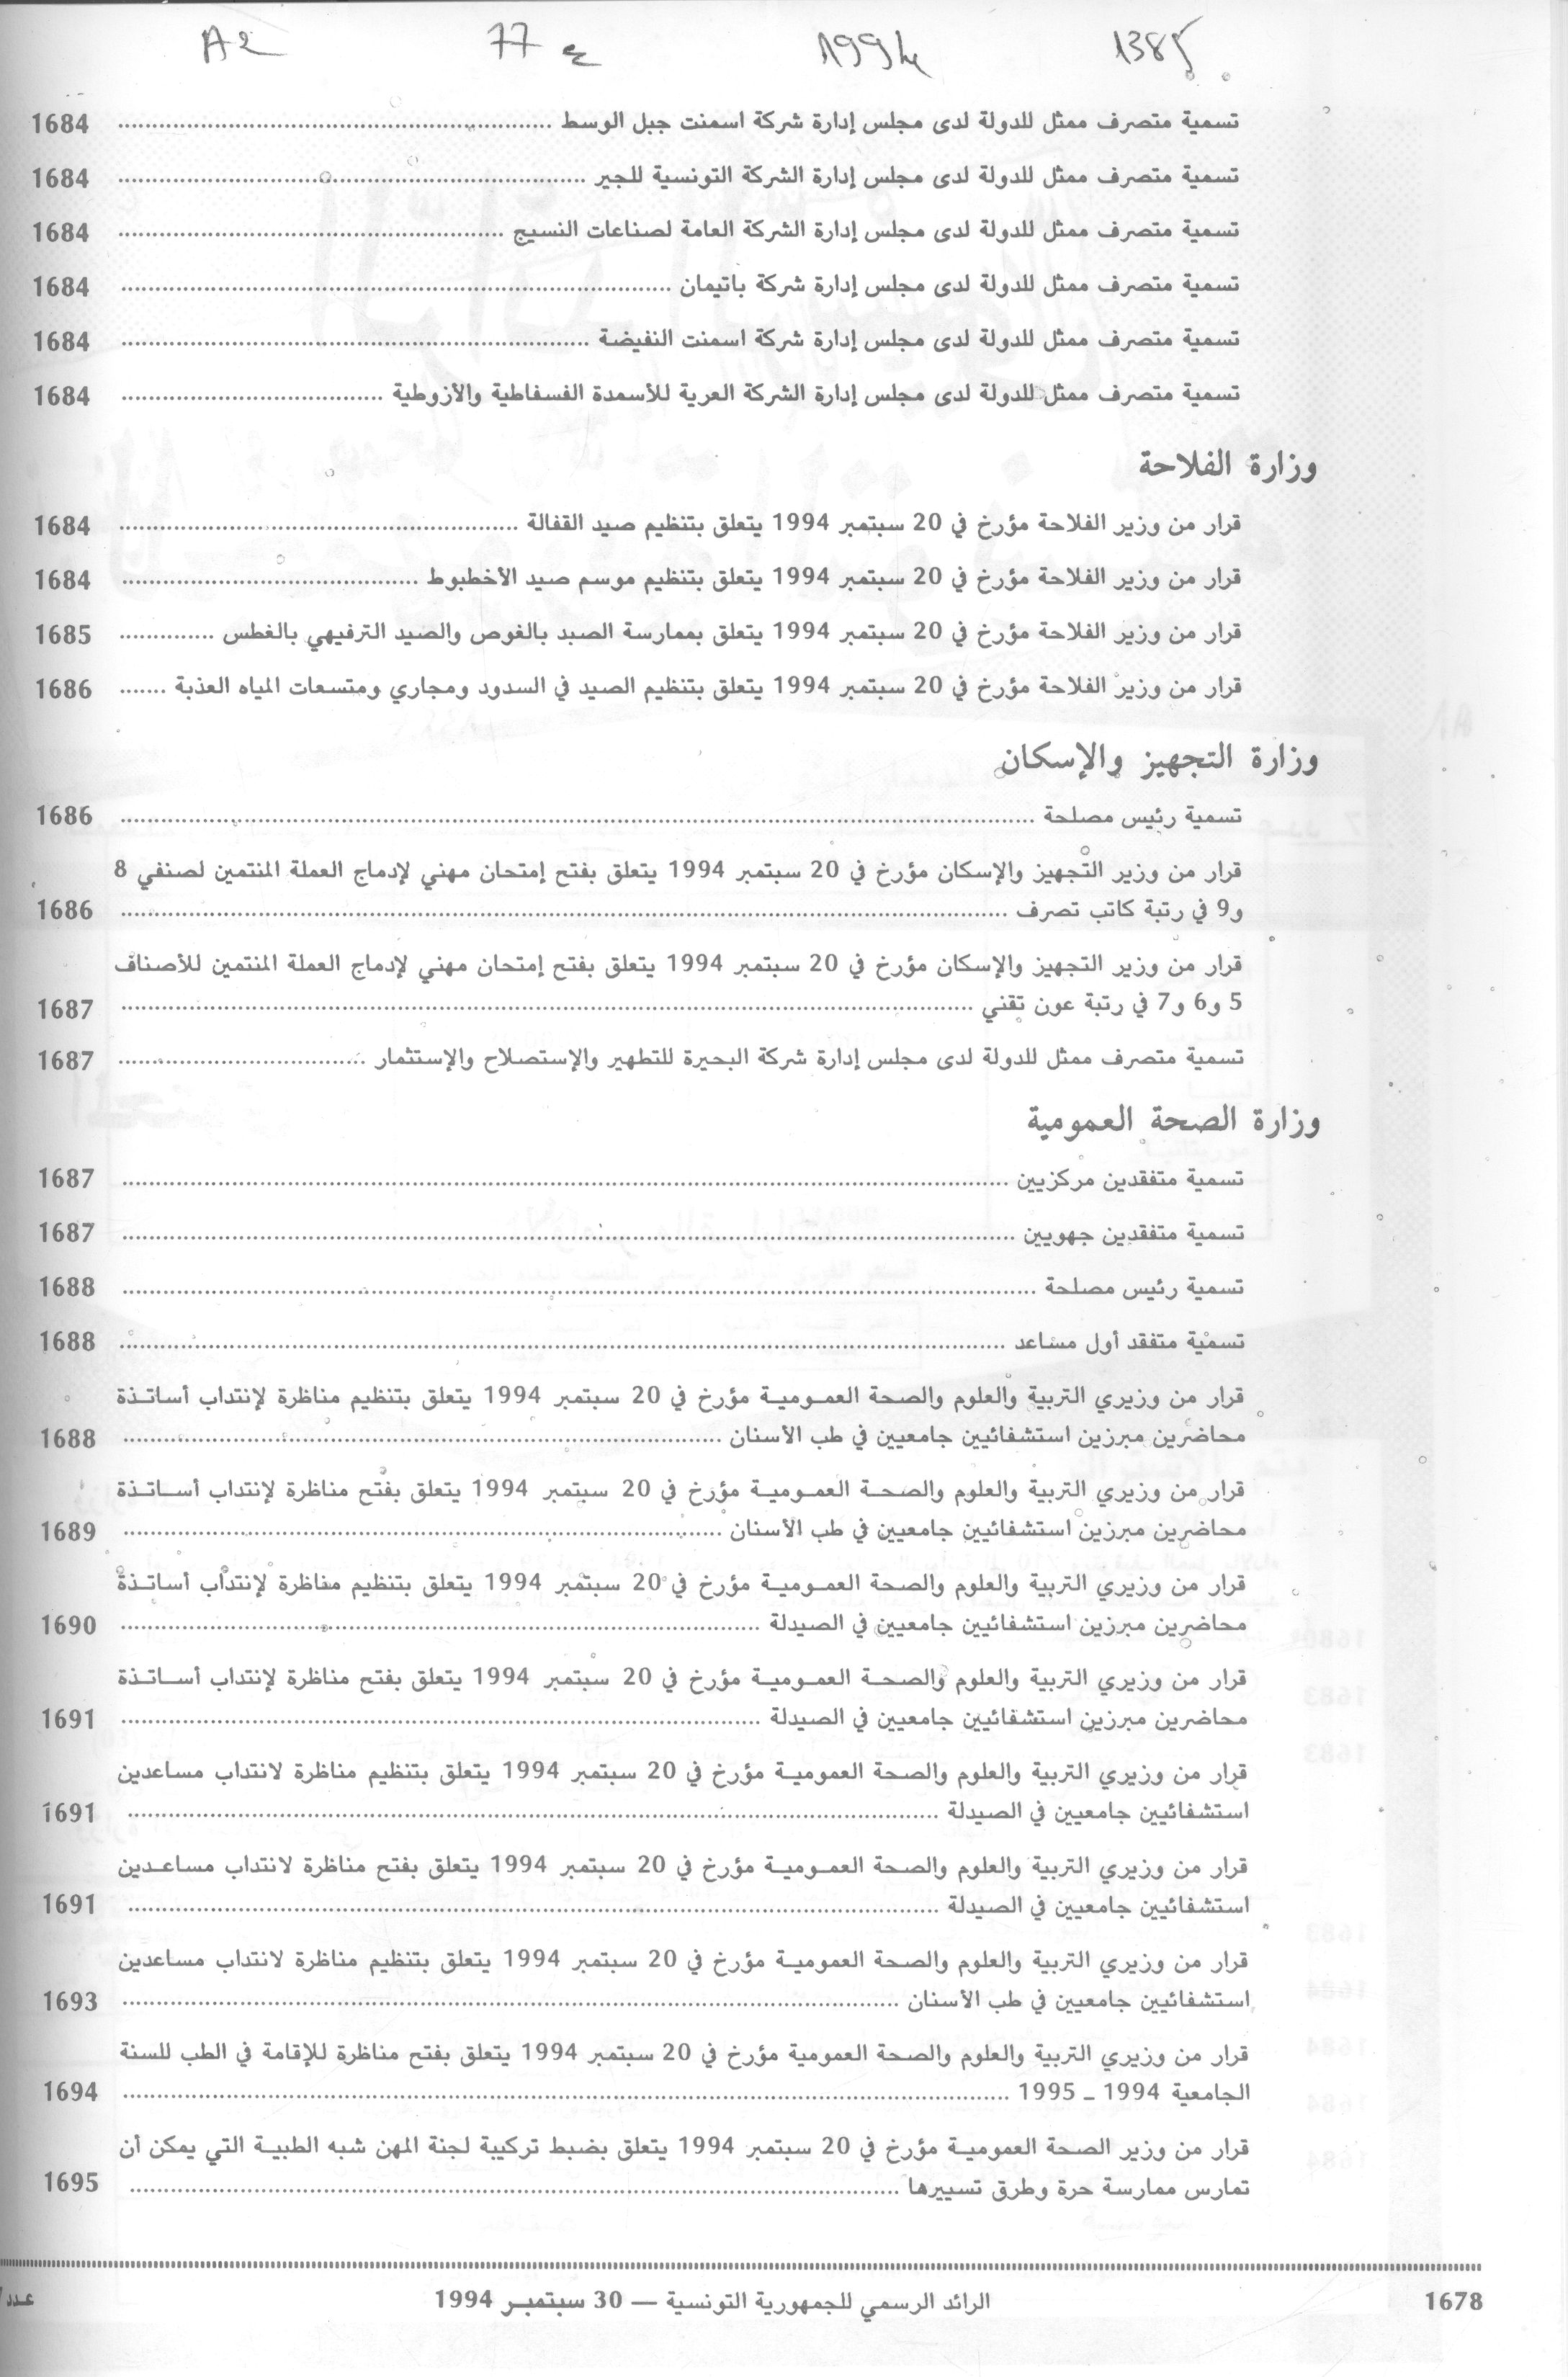 A2 77 ع 1994 1385
تسمية متصرف ممثل للدولة لدى مجلس إدارة شركة اسمنت جبل الوسط ........ 1684
تسمية متصرف ممثل للدولة لدى مجلس إدارة الشركة التونسية للجير ........ 1684
تسمية متصرف ممثل للدولة لدى مجلس إدارة الشركة العامة لصناعات النسيج ........ 1684
تسمية متصرف ممثل للدولة لدى مجلس إدارة شركة باتيمان ........ 1684
تسمية متصرف ممثل للدولة لدى مجلس إدارة شركة اسمنت النفيضة ........ 1684
تسمية متصرف ممثل للدولة لدى مجلس إدارة الشركة العربية للأسمدة الفسفاطية والأزوطية ........ 1684
وزارة الفلاحة
قرار من وزير الفلاحة مؤرخ في 20 سبتمبر 1994 يتعلق بتنظيم صيد القفالة ........ 1684
قرار من وزير الفلاحة مؤرخ في 20 سبتمبر 1994 يتعلق بتنظيم موسم صيد الأخطبوط ........ 1684
قرار من وزير الفلاحة مؤرخ في 20 سبتمبر 1994 يتعلق بممارسة الصبد بالغوص والصيد الترفيهي بالغطس ........ 1685
قرار من وزير الفلاحة مؤرخ في 20 سبتمبر 1994 يتعلق بتنظيم الصيد في السدود ومجاري ومتسعات المياه العذبة ....... 1686
وزارة التجهيز والإسكان
تسمية رئيس مصلحة ........ 1686
قرار من وزير التجهيز والإسكان مؤرخ في 20 سبتمبر 1994 يتعلق بفتح إمتحان مهني لإدماج العملة المنتمين لصنفي 8
و9 في رتبة كاتب تصرف ........ 1686
قرار من وزير التجهيز والإسكان مؤرخ في 20 سبتمبر 1994 يتعلق بفتح إمتحان مهني لإدماج العملة المنتمين للأصناف
5 و6 و7 في رتبة عون تقني ........ 1687
تسمية متصرف ممثل للدولة لدى مجلس إدارة شركة البحيرة للتطهير والإستصلاح والإستثمار ........ 1687
وزارة الصحة العمومية
تسمية متفقدين مركزيين ........ 1687
تسمية متفقدين جهويين ........ 1687
تسمية رئيس مصلحة ........ 1688
تسمية متفقد أول مساعد ........ 1688
قرار من وزيري التربية والعلوم والصحة العمومية مؤرخ في 20 سبتمبر 1994 يتعلق بتنظيم مناظرة لإنتداب أساتذة
محاضرين مبرزين استشفائيين جامعيين في طب الأسنان ........ 1688
قرار من وزيري التربية والعلوم والصحة العمومية مؤرخ في 20 سبتمبر 1994 يتعلق بفتح مناظرة لإنتداب أساتذة
محاضرين مبرزين استشفائيين جامعيين في طب الأسنان ........ 1689
قرار من وزيري التربية والعلوم والصحة العمومية مؤرخ في 20 سبتمبر 1994 يتعلق بتنظيم مناظرة لإنتداب أساتذة
محاضرين مبرزين استشفائيين جامعيين في الصيدلة ........ 1690
قرار من وزيري التربية والعلوم والصحة العمومية مؤرخ في 20 سبتمبر 1994 يتعلق بفتح مناظرة لإنتداب أساتذة
محاضرين مبرزين استشفائيين جامعيين في الصيدلة ........ 1691
قرار من وزيري التربية والعلوم والصحة العمومية مؤرخ في 20 سبتمبر 1994 يتعلق بتنظيم مناظرة لانتداب مساعدين
استشفائيين جامعيين في الصيدلة ........ 1691
قرار من وزيري التربية والعلوم والصحة العمومية مؤرخ في 20 سبتمبر 1994 يتعلق بفتح مناظرة لانتداب مساعدين
استشفائيين جامعيين في الصيدلة ........ 1691
قرار من وزيري التربية والعلوم والصحة العمومية مؤرخ في 20 سبتمبر 1994 يتعلق بتنظيم مناظرة لانتداب مساعدين
استشفائيين جامعيين في طب الأسنان ........ 1693
قرار من وزيري التربية والعلوم والصحة العمومية مؤرخ في 20 سبتمبر 1994 يتعلق بفتح مناظرة للإقامة في الطب للسنة
الجامعية 1994 ـ 1995 ........ 1694
قرار من وزير الصحة العمومية مؤرخ في 20 سبتمبر 1994 يتعلق بضبط تركيبة لجنة المهن شبه الطبية التي يمكن أن
تمارس ممارسة حرة وطرق تسييرها ........ 1695
1678 الرائد الرسمي للجمهورية التونسية — 30 سبتمبر 1994 عدد